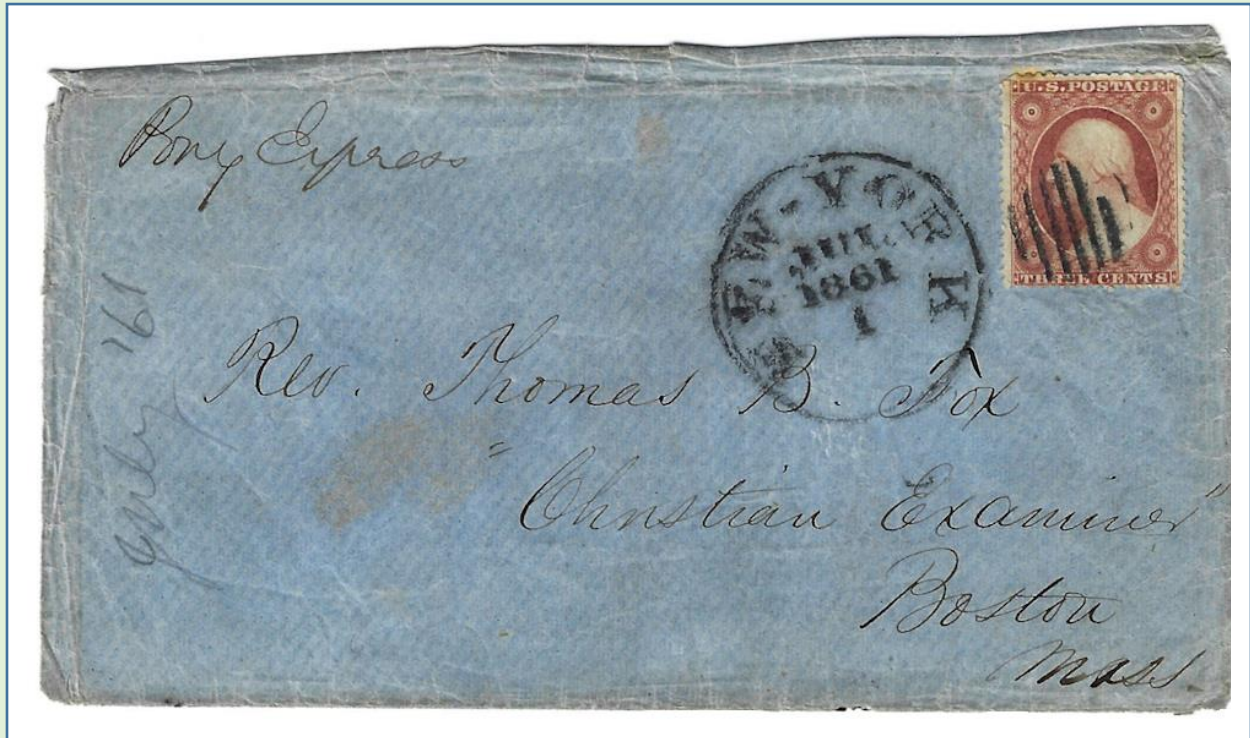 Pony Express
U.S. POSTAGE
THREE CENTS
NEW-YORK
JUL
1861
1
July '61
Rev. Thomas B. Fox
"Christian Examiner"
Boston
Mass